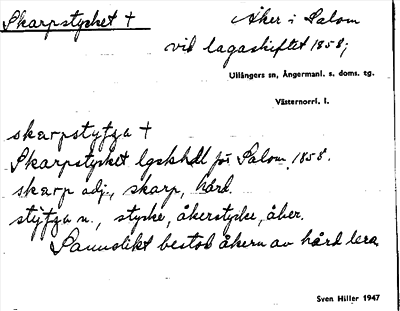 Skarpstycket +
Åker i Salom
vid lagaskiftet 1858;
Ullångers sn, Ångermanl. s. doms. tg.
Västernorrl. l.
skarpstytja +
Skarpstycket lgskhdl för Salom, 1858.
skarp adj., skarp, hård.
stytja n., stycke, åkerstycke, åker.
Sannolikt bestod åkern av hård lera.
Sven Hiller 1947